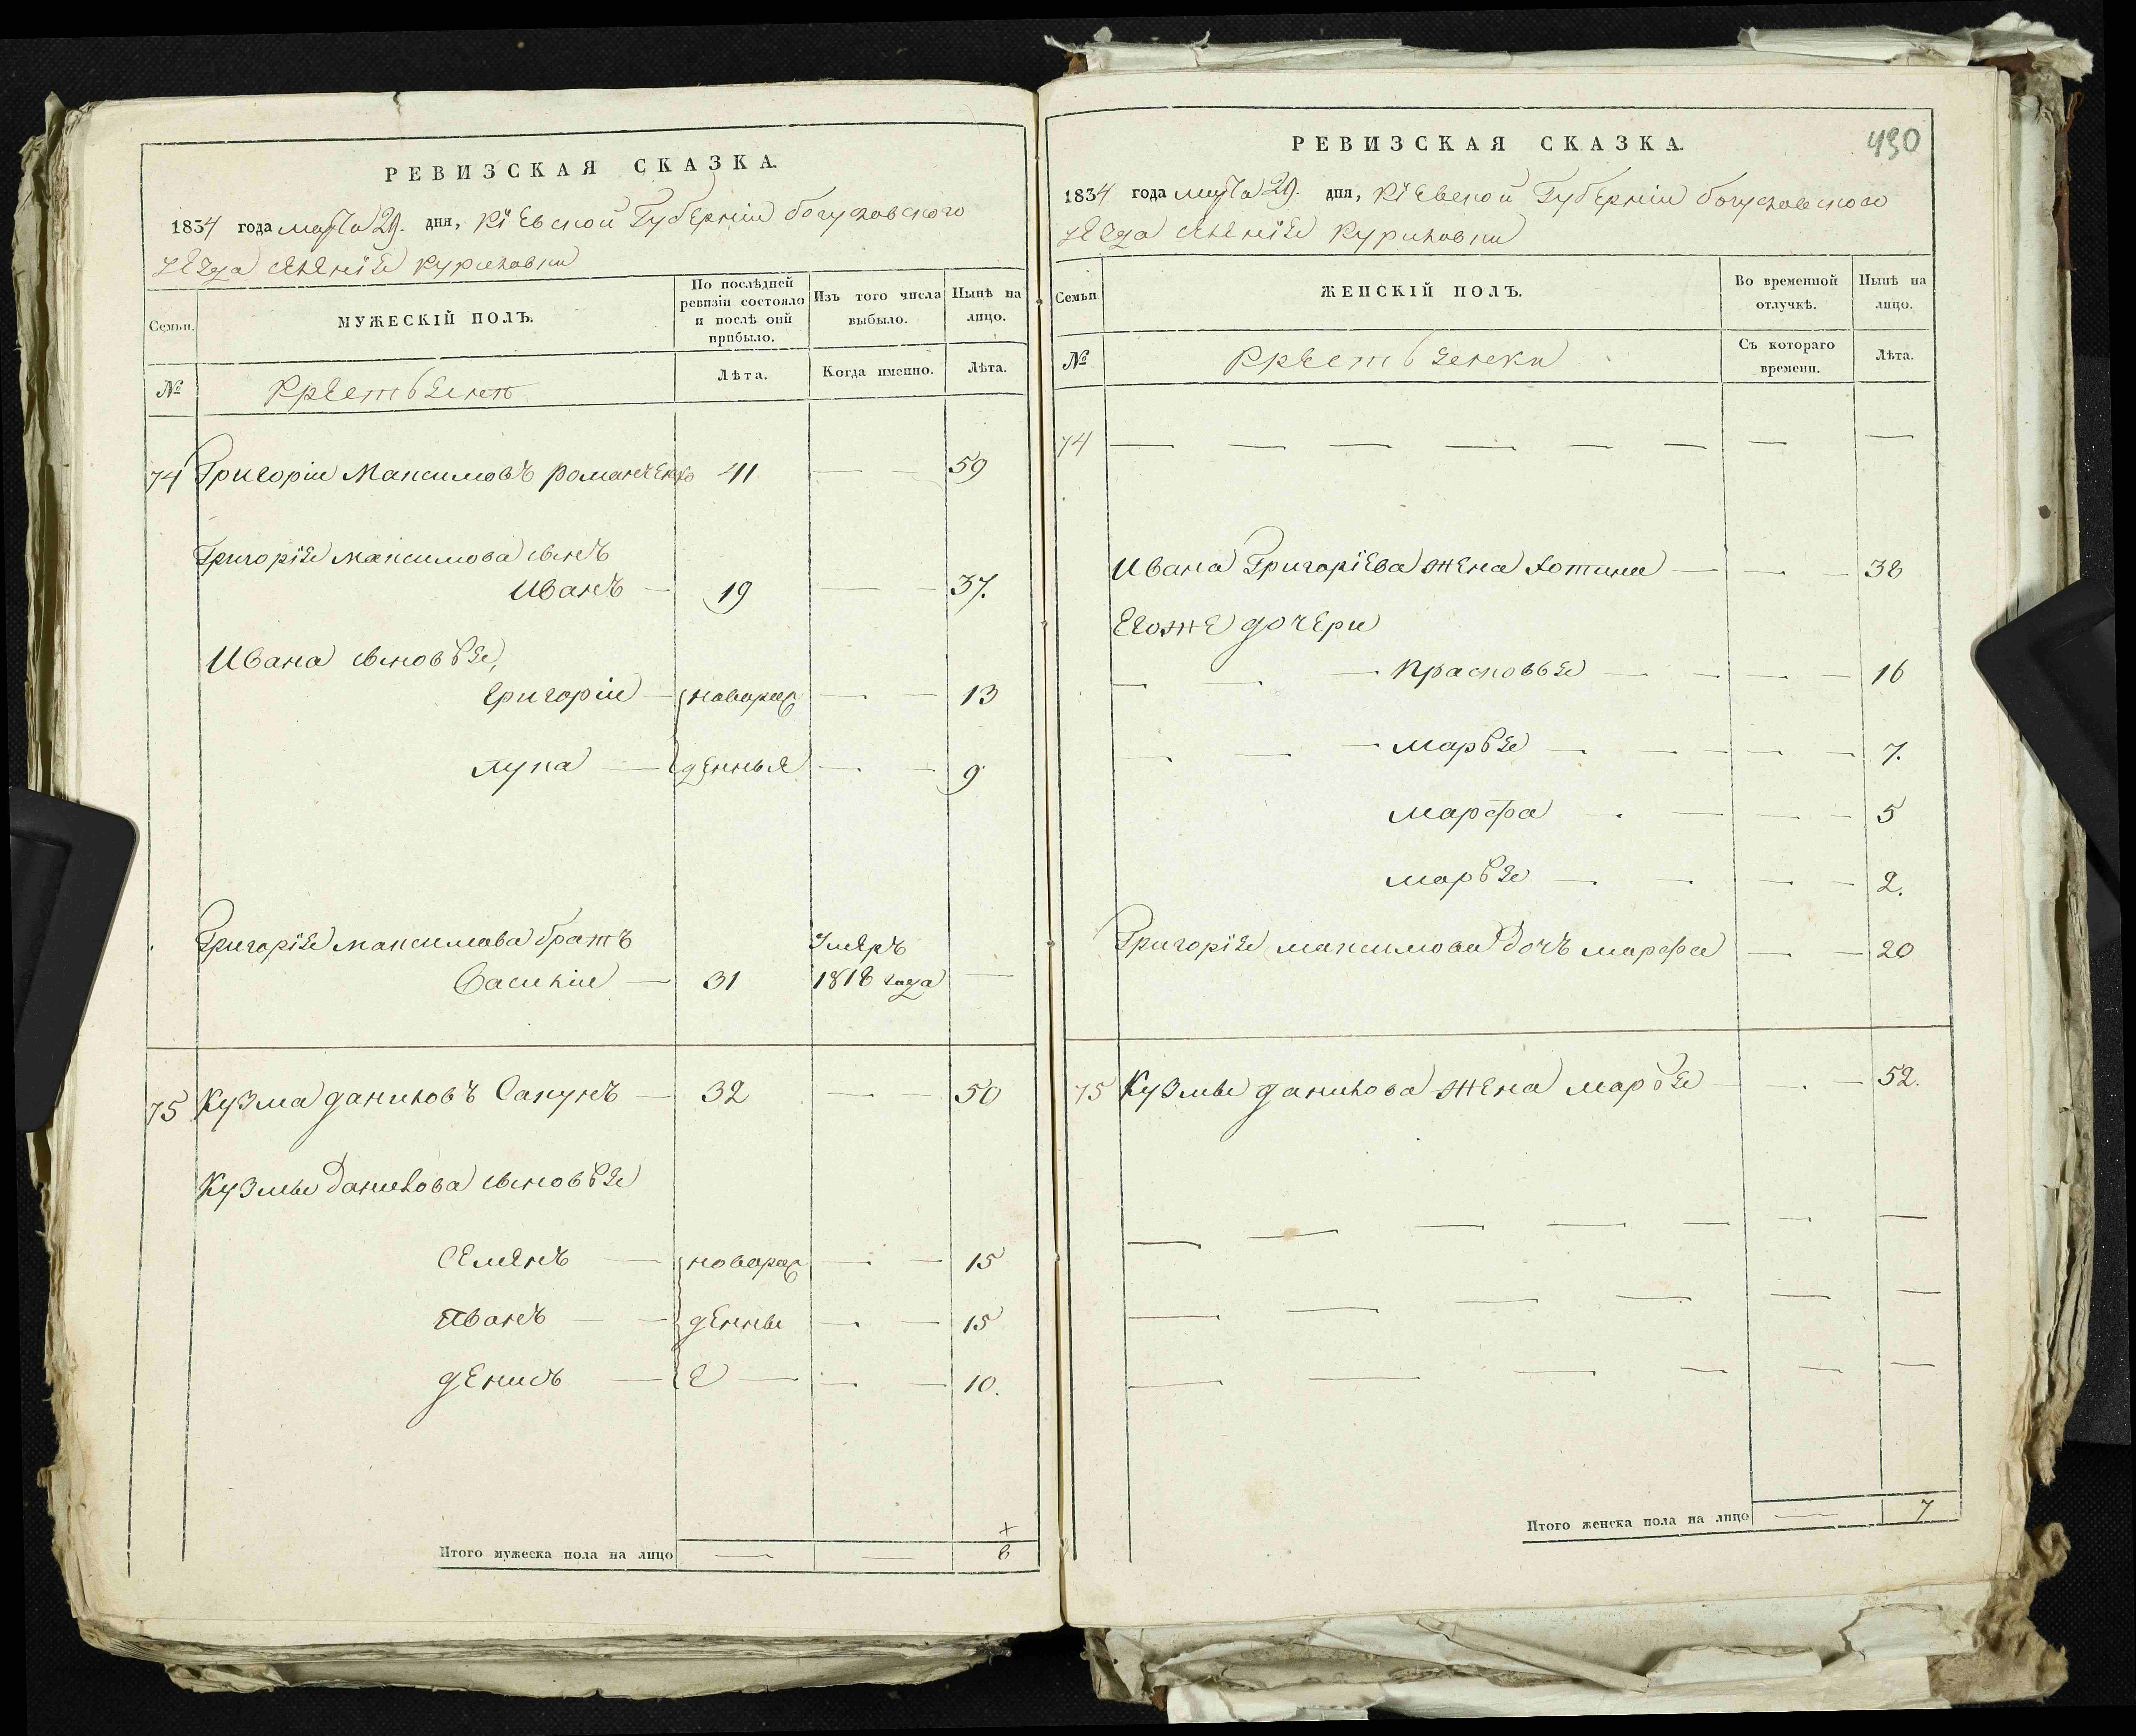 РЕВИЗСКАЯ СКАЗКА.
1834 года марта 29. дня, Кіевской Губерніи богуславского
уезда селенія Куриловки
Семьи.
МУЖЕСКІЙ ПОЛЪ.
По послѣдней ревизіи состояло и послѣ оній прибыло.
Изъ того числа выбыло.
Нынѣ на лицо.
№
Крестьянѣ
Лѣта.
Когда именно.
Лѣта.
74 Григоріи Максимовъ романченко 41 — — 59
Григорія максимова сынъ
Иванъ — 19 — — 37.
Ивана сыновья,
григоріи — новорож — — 13
лука — денныя — — 9
Григорія максимова братъ умеръ
Василіи — 31 1818 года —
75 Кузма даниловъ Сапунъ — 32 — — 50
Кузмы данилова сыновья
Семенъ — новорож — — 15
иванъ — — денны — — 15
денисъ — е — — — 10.
Итого мужеска пола на лицо — — 8
РЕВИЗСКАЯ СКАЗКА.
490
1834 года марта 29. дня, Кіевской Губерніи богуславского
уезда селенія Куриловки
Семьи
ЖЕНСКІЙ ПОЛЪ.
Во временной отлучкѣ.
Нынѣ на лицо.
№
Крестьянски
Съ котораго времени.
Лѣта.
74 — — — — — — — — —
Ивана Григоріева жена хотина — — — 38
Егоже дочери
— — — прасковья — — — — 16
— — — марья — — — — — 7.
марфа — — — — 5
марья — — — — 2.
Григорія максимова дочъ марфа — — 20
75 Кузмы данилова жена марья — — — 52.
Итого женска пола на лицо — 7